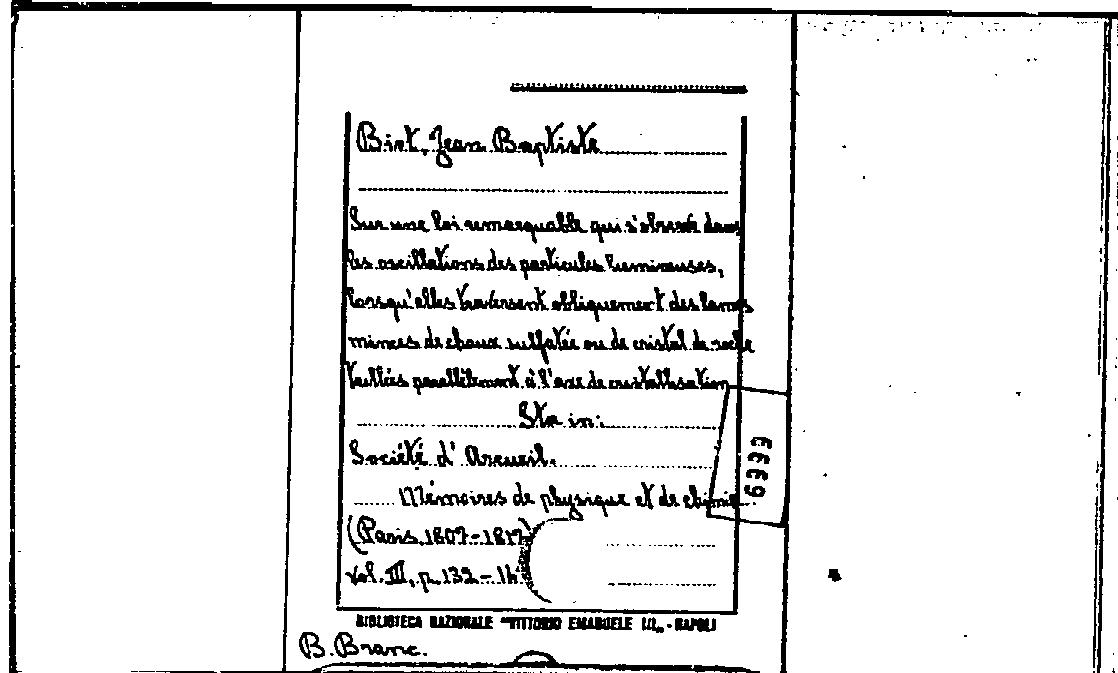 Biot, Jean Baptiste
Sur une loi remarquable qui s'observe dans
les oscillations des particules lumineuses,
lorsqu'elles traversent obliquement des lames
minces de chaux sulfatée ou de cristal de roche
taillées parallèlement à l'axe de cristallisation
Sta in:
Société d'Arcueil.
Mémoires de physique et de chimie
(Paris, 1807-1817)
vol. III, p. 132-14
BIBLIOTECA NAZIONALE "VITTORIO EMANUELE III" - NAPOLI
B. Branc.